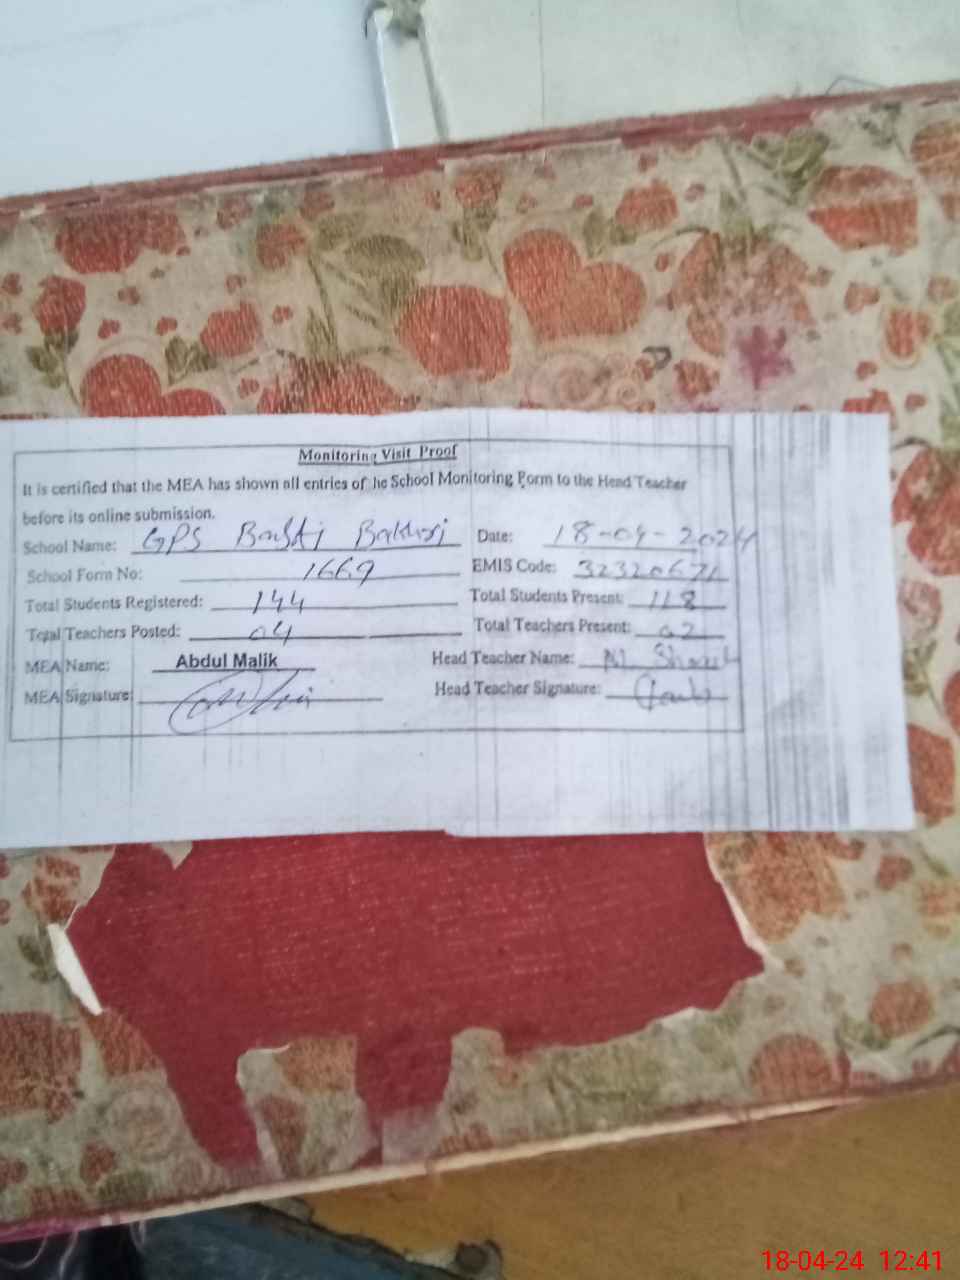 Monitoring Visit Proof
It is certified that the MEA has shown all entries of he School Monitoring Form to the Head Teacher
before its online submission.
School Name: GPS Basti Bakhri Date: 18-04-2024
School Form No: 1669 EMIS Code: 32320671
Total Students Registered: 144 Total Students Present: 118
Total Teachers Posted: 04 Total Teachers Present: 02
MEA Name: Abdul Malik Head Teacher Name:
MEA Signature: Head Teacher Signature:
18-04-24 12:41